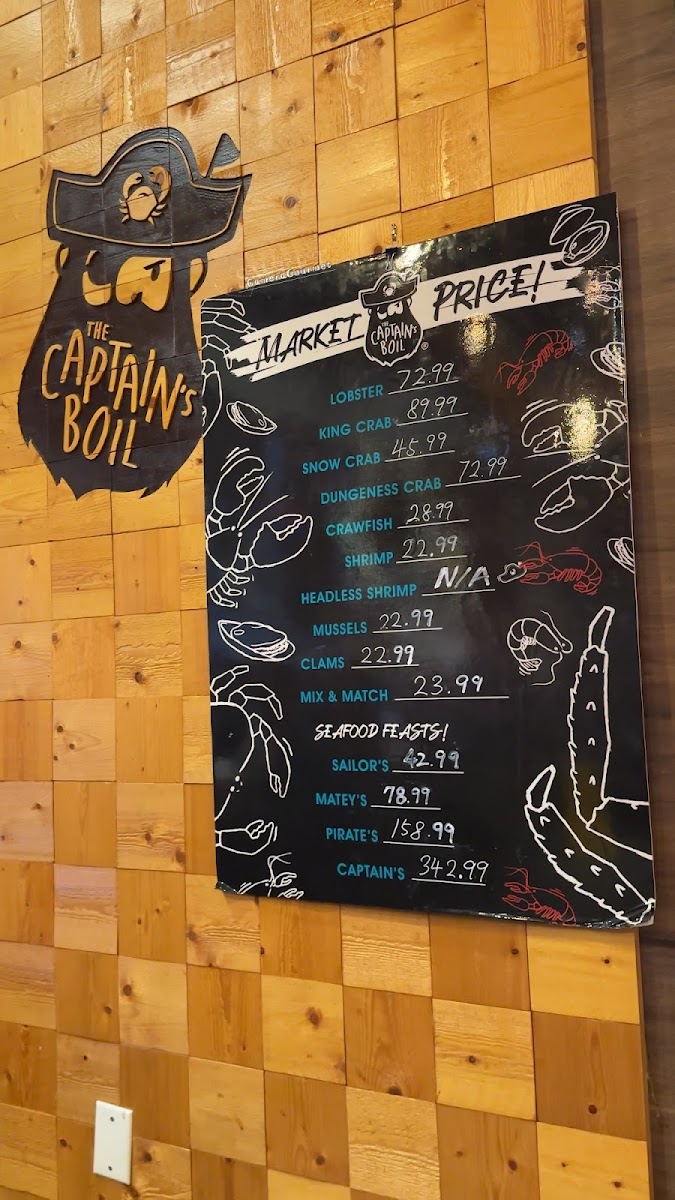 THE
CAPTAIN'S
BOIL
CameraGourmet
MARKET PRICE!
THE
CAPTAIN'S
BOIL®
LOBSTER 72.99
KING CRAB 89.99
SNOW CRAB 45.99
DUNGENESS CRAB 72.99
CRAWFISH 28.99
SHRIMP 22.99
HEADLESS SHRIMP N/A
MUSSELS 22.99
CLAMS 22.99
MIX & MATCH 23.99
SEAFOOD FEASTS!
SAILOR'S 42.99
MATEY'S 78.99
PIRATE'S 158.99
CAPTAIN'S 342.99